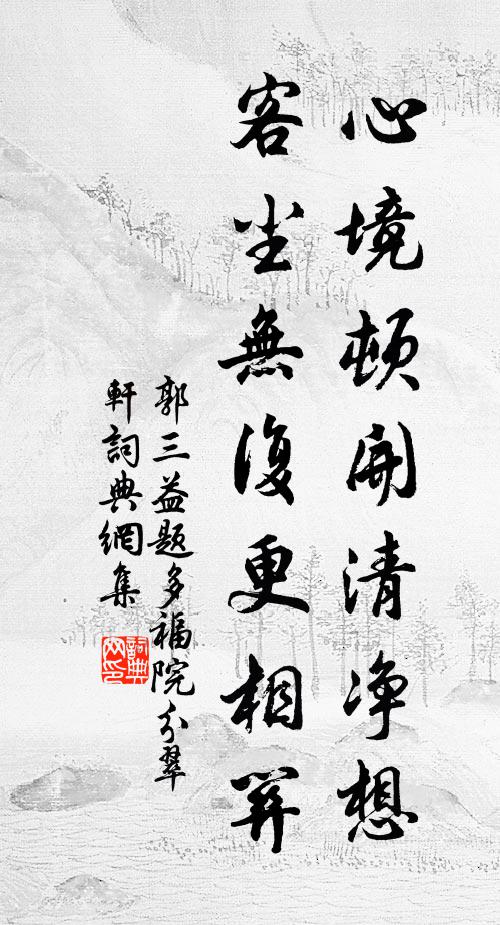 心境頓開清净想
客尘無復更相關
郭三益題多福院分翠
軒詞典網集
詞典
网印